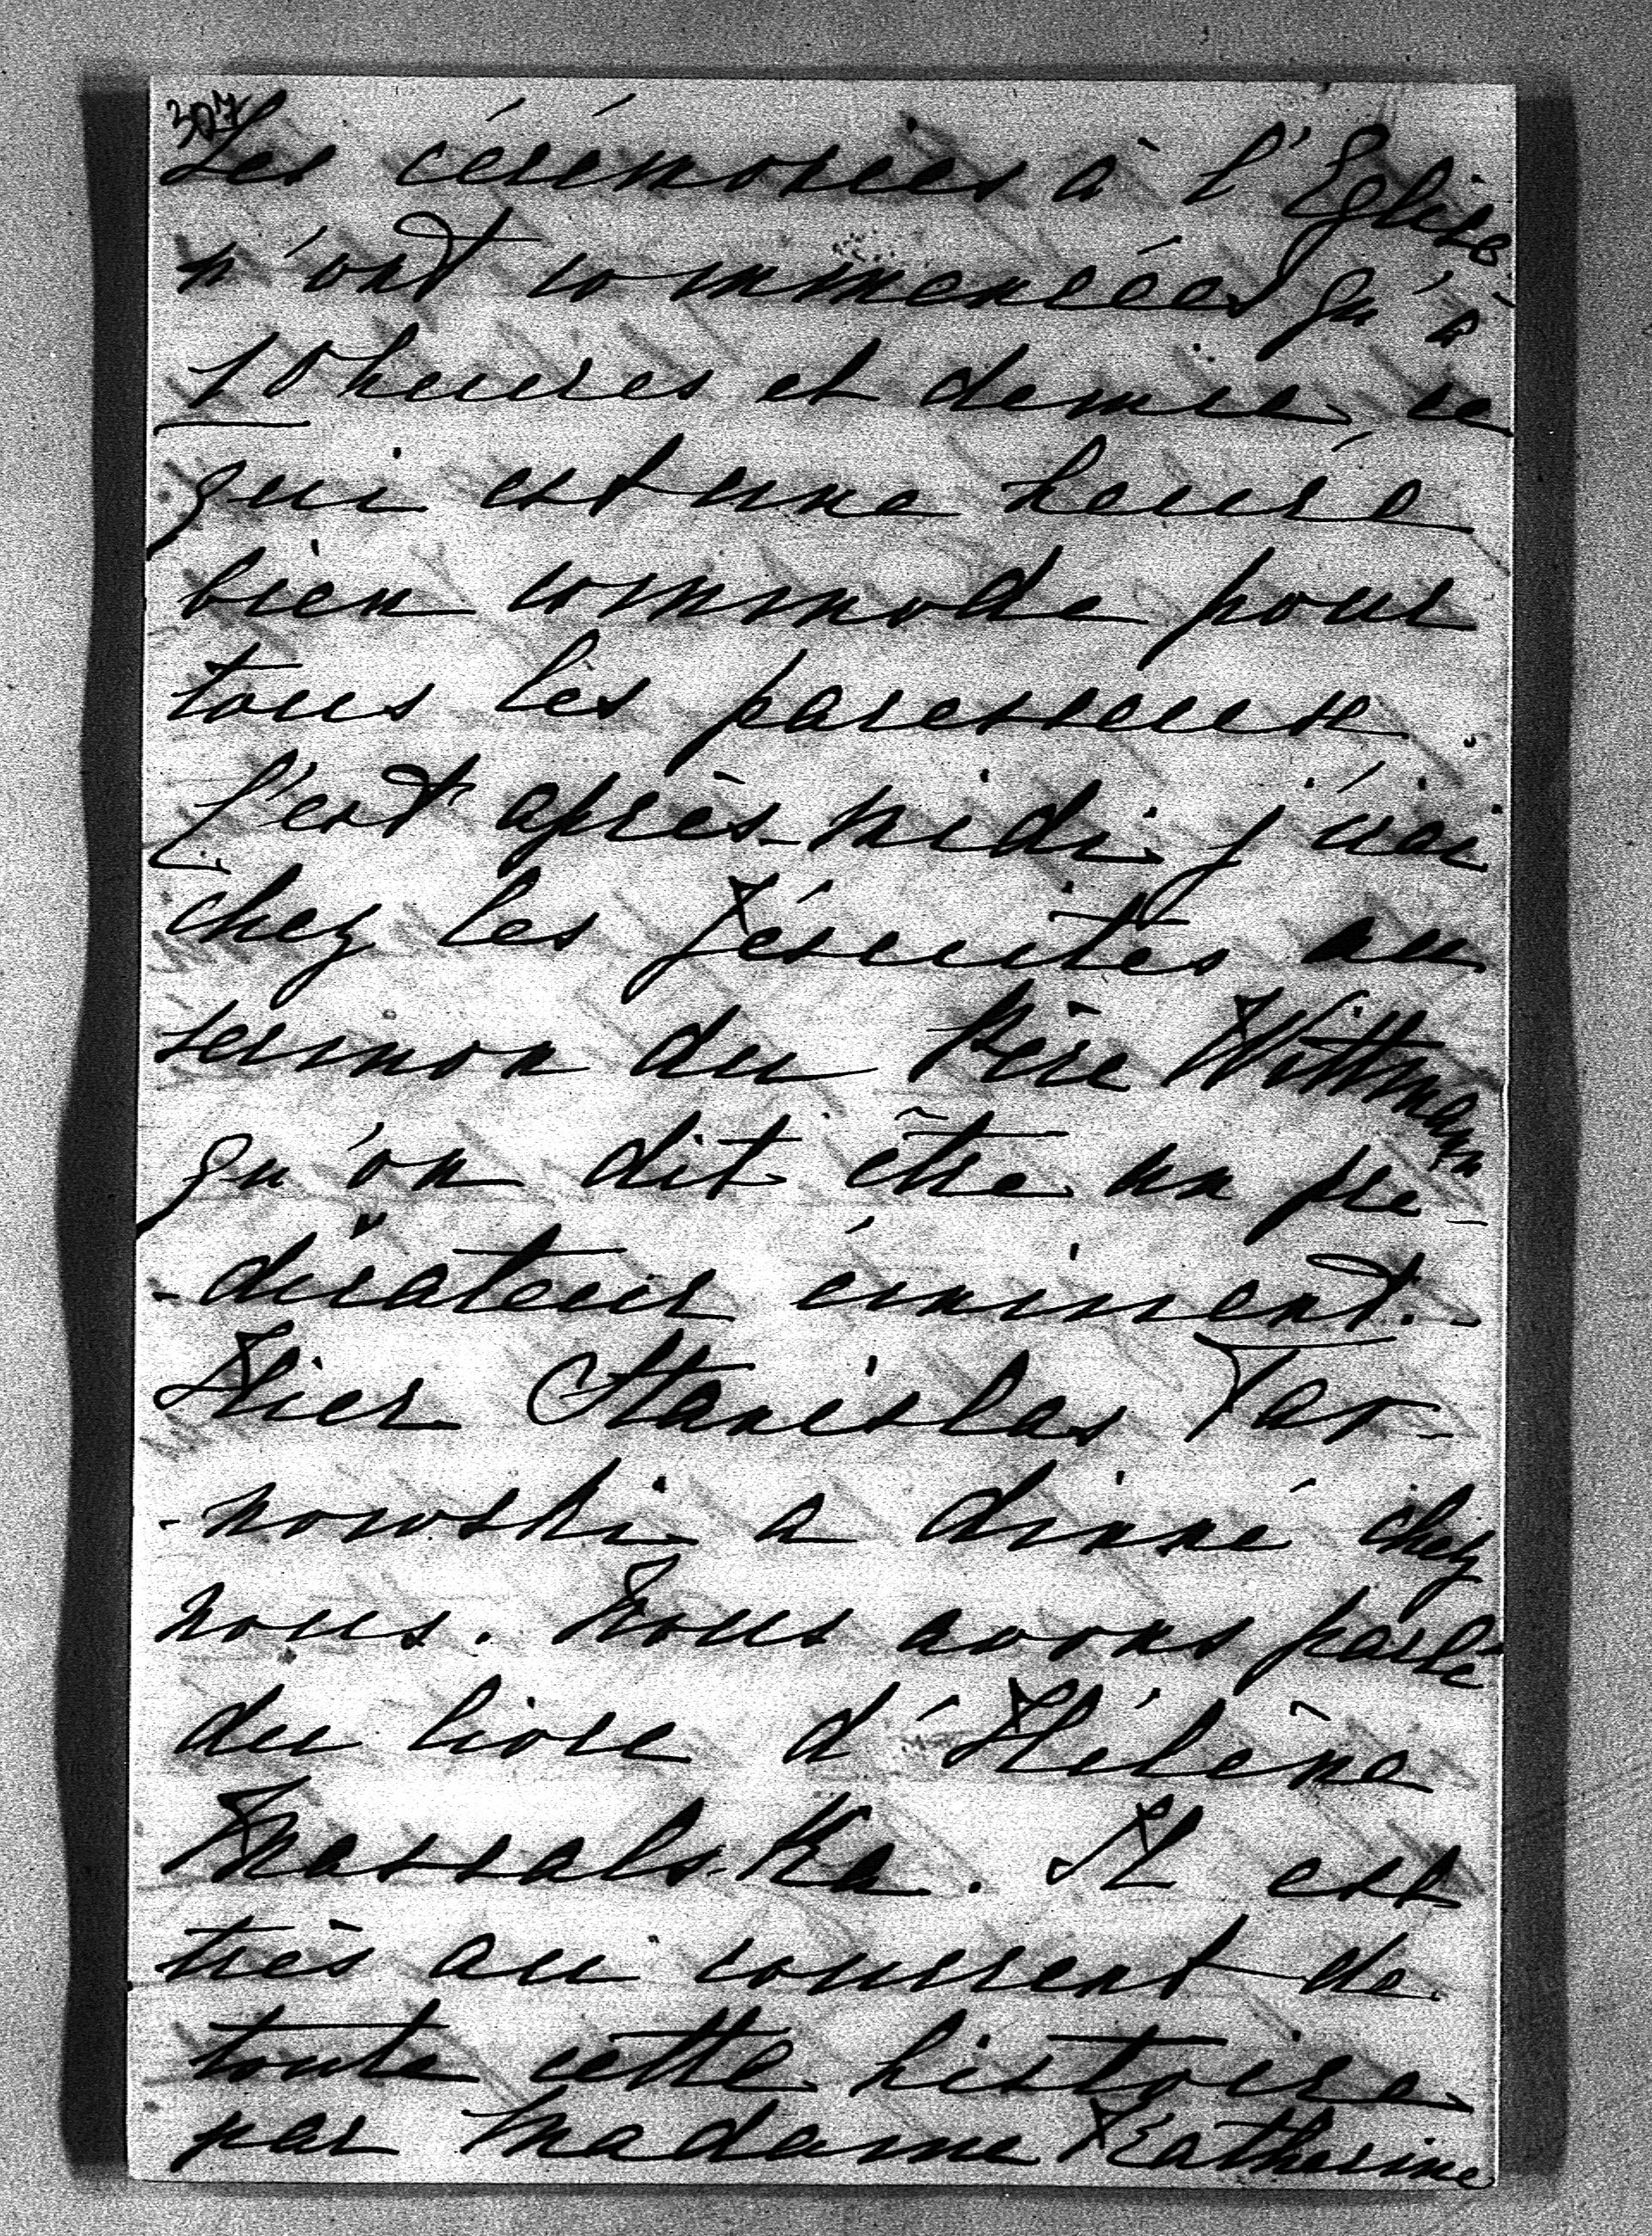 307
Les cérémonies à l'Eglise
n'ont commencées qu'à
10 heures et demie, ce
qui est une heure
bien commode pour
tous les paresseux.
C'est après-midi j'irai
chez les Jésuites au
sermon du Père Wittmann
qu'on dit être un pré-
-dicateur éminent.
Hier Stanislas Tar-
-nowski a dinné chez
nous. Nous avons parlé
du livre d'Hélène
Massalska. Il est
très au courrent de
toute cette histoire
par Madame Katherine